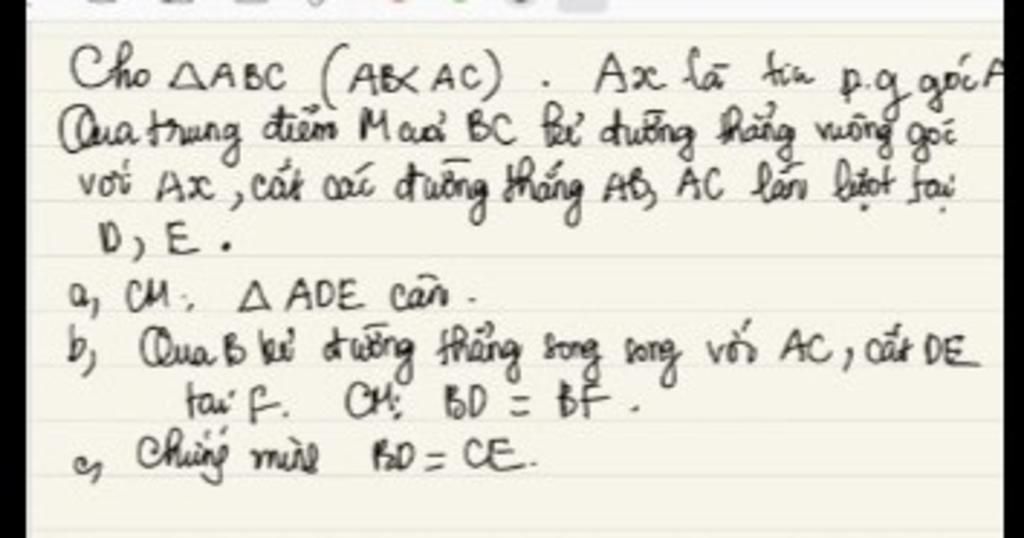 Cho △ABC (AB<AC). Ax là tia p.g góc A
Qua trung điểm M của BC kẻ đường thẳng vuông góc
với Ax, cắt các đường thẳng AB, AC lần lượt tại
D, E.
a, CM: △ ADE cân.
b, Qua B kẻ đường thẳng song song với AC, cắt DE
tại F. CM: BD = BF.
c, Chứng minh BD = CE.